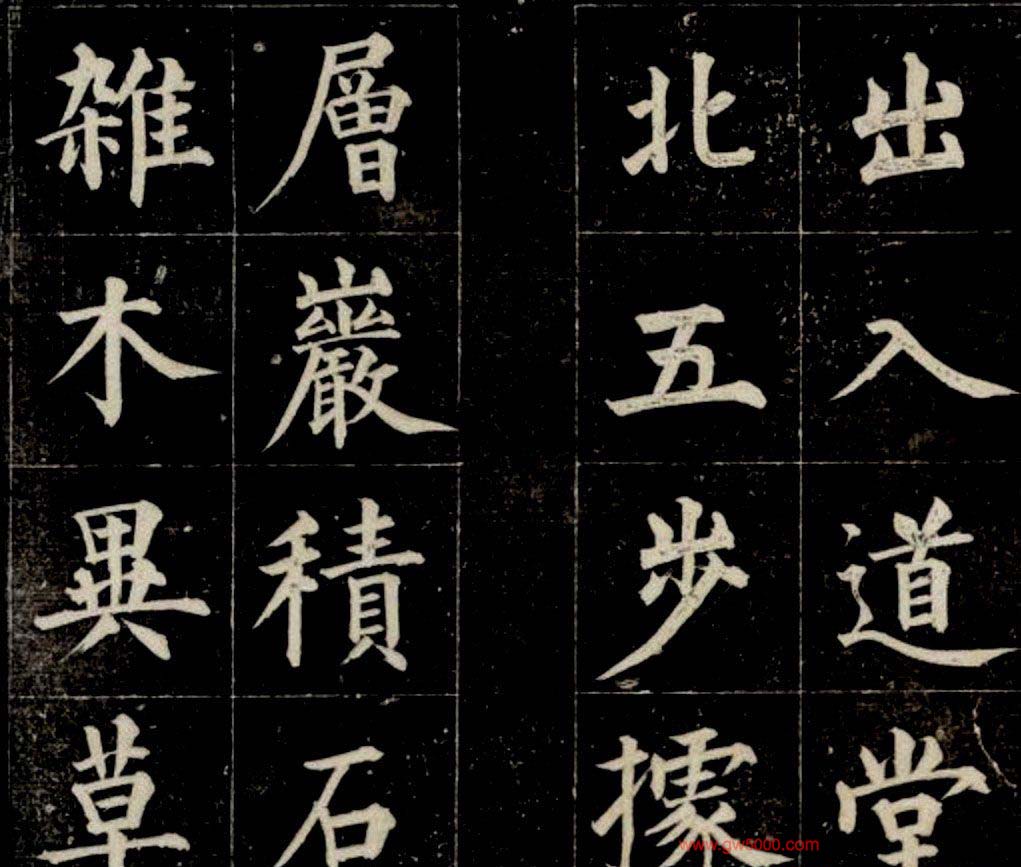 出入道堂
北五步據
層巖積石
雑木異草
www.gw8000.com